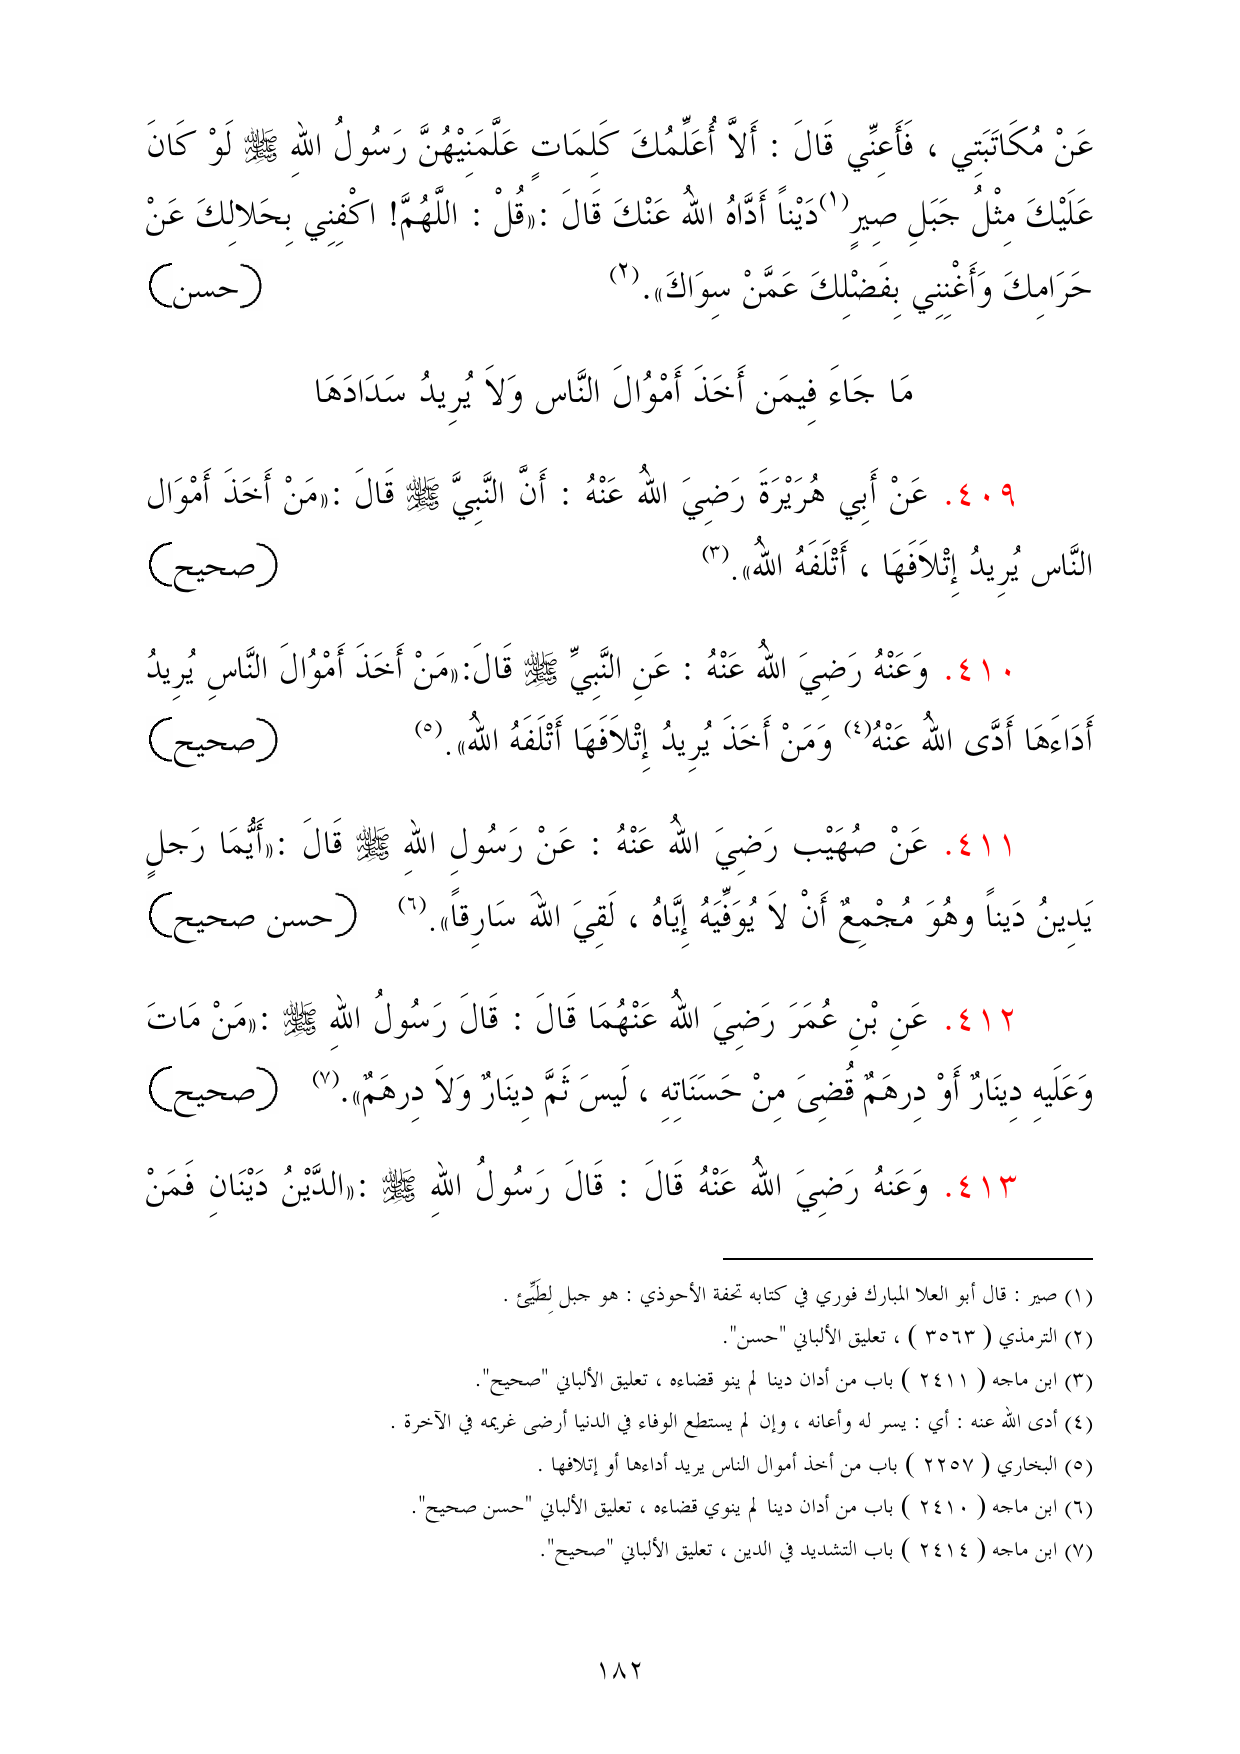 عَنْ مُكَاتَبَتِي ، فَأَعِنِّي قَالَ : أَلاَّ أُعَلِّمُكَ كَلِمَاتٍ عَلَّمَنِيْهُنَّ رَسُولُ اللهِ ﷺ لَوْ كَانَ
عَلَيْكَ مِثْلُ جَبَلِ صِيرٍ(١)دَيْناً أَدَّاهُ اللهُ عَنْكَ قَالَ :«قُلْ : اللَّهُمَّ! اكْفِنِي بِحَلالِكَ عَنْ
حَرَامِكَ وَأَغْنِنِي بِفَضْلِكَ عَمَّنْ سِوَاكَ».(٢) (حسن)
مَا جَاءَ فِيمَن أَخَذَ أَمْوُالَ النَّاس وَلاَ يُرِيدُ سَدَادَهَا
٤٠٩. عَنْ أَبِي هُرَيْرَةَ رَضِيَ اللهُ عَنْهُ : أَنَّ النَّبِيَّ ﷺ قَالَ :«مَنْ أَخَذَ أَمْوَال
النَّاس يُرِيدُ إِتْلاَفَهَا ، أَتْلَفَهُ اللهُ».(٣) (صحيح)
٤١٠. وَعَنْهُ رَضِيَ اللهُ عَنْهُ : عَنِ النَّبِيِّ ﷺ قَالَ:«مَنْ أَخَذَ أَمْوُالَ النَّاسِ يُرِيدُ
أَدَاءَهَا أَدَّى اللهُ عَنْهُ(٤) وَمَنْ أَخَذَ يُرِيدُ إِتْلاَفَهَا أَتْلَفَهُ اللهُ».(٥) (صحيح)
٤١١. عَنْ صُهَيْب رَضِيَ اللهُ عَنْهُ : عَنْ رَسُولِ اللهِ ﷺ قَالَ :«أَيُّمَا رَجلٍ
يَدِينُ دَيناً وهُوَ مُجْمِعٌ أَنْ لاَ يُوَفِّيَهُ إِيَّاهُ ، لَقِيَ اللهَ سَارِقاً».(٦) (حسن صحيح)
٤١٢. عَنِ بْنِ عُمَرَ رَضِيَ اللهُ عَنْهُمَا قَالَ : قَالَ رَسُولُ اللهِ ﷺ :«مَنْ مَاتَ
وَعَلَيهِ دِينَارٌ أَوْ دِرهَمٌ قُضِىَ مِنْ حَسَنَاتِهِ ، لَيسَ ثَمَّ دِينَارٌ وَلاَ دِرهَمٌ».(٧) (صحيح)
٤١٣. وَعَنهُ رَضِيَ اللهُ عَنْهُ قَالَ : قَالَ رَسُولُ اللهِ ﷺ :«الدَّيْنُ دَيْنَانِ فَمَنْ
(١) صير : قال أبو العلا المبارك فوري في كتابه تحفة الأحوذي : هو جبل لِطَيِّئ .
(٢) الترمذي ( ٣٥٦٣ ) ، تعليق الألباني "حسن".
(٣) ابن ماجه ( ٢٤١١ ) باب من أدان دينا لم ينو قضاءه ، تعليق الألباني "صحيح".
(٤) أدى الله عنه : أي : يسر له وأعانه ، وإن لم يستطع الوفاء في الدنيا أرضى غريمه في الآخرة .
(٥) البخاري ( ٢٢٥٧ ) باب من أخذ أموال الناس يريد أداءها أو إتلافها .
(٦) ابن ماجه ( ٢٤١٠ ) باب من أدان دينا لم ينوي قضاءه ، تعليق الألباني "حسن صحيح".
(٧) ابن ماجه ( ٢٤١٤ ) باب التشديد في الدين ، تعليق الألباني "صحيح".
١٨٢